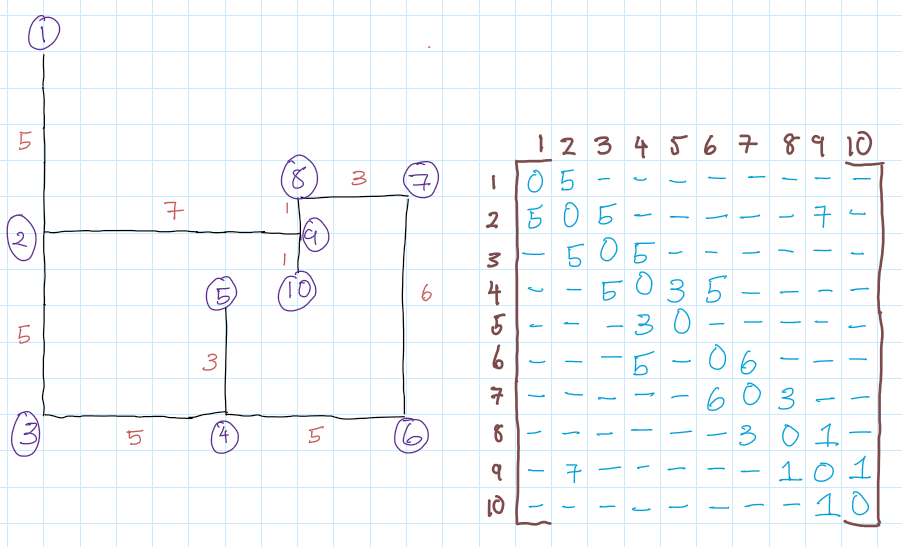 1
5
8 3 7
7 1
2 9
1
5 10 6
5
3
3 5 4 5 6
1 2 3 4 5 6 7 8 9 10
1 0 5 - - - - - - - -
2 5 0 5 - - - - - 7 -
3 - 5 0 5 - - - - - -
4 - - 5 0 3 5 - - - -
5 - - - 3 0 - - - - -
6 - - - 5 - 0 6 - - -
7 - - - - - 6 0 3 - -
8 - - - - - - 3 0 1 -
9 - 7 - - - - - 1 0 1
10 - - - - - - - - 1 0